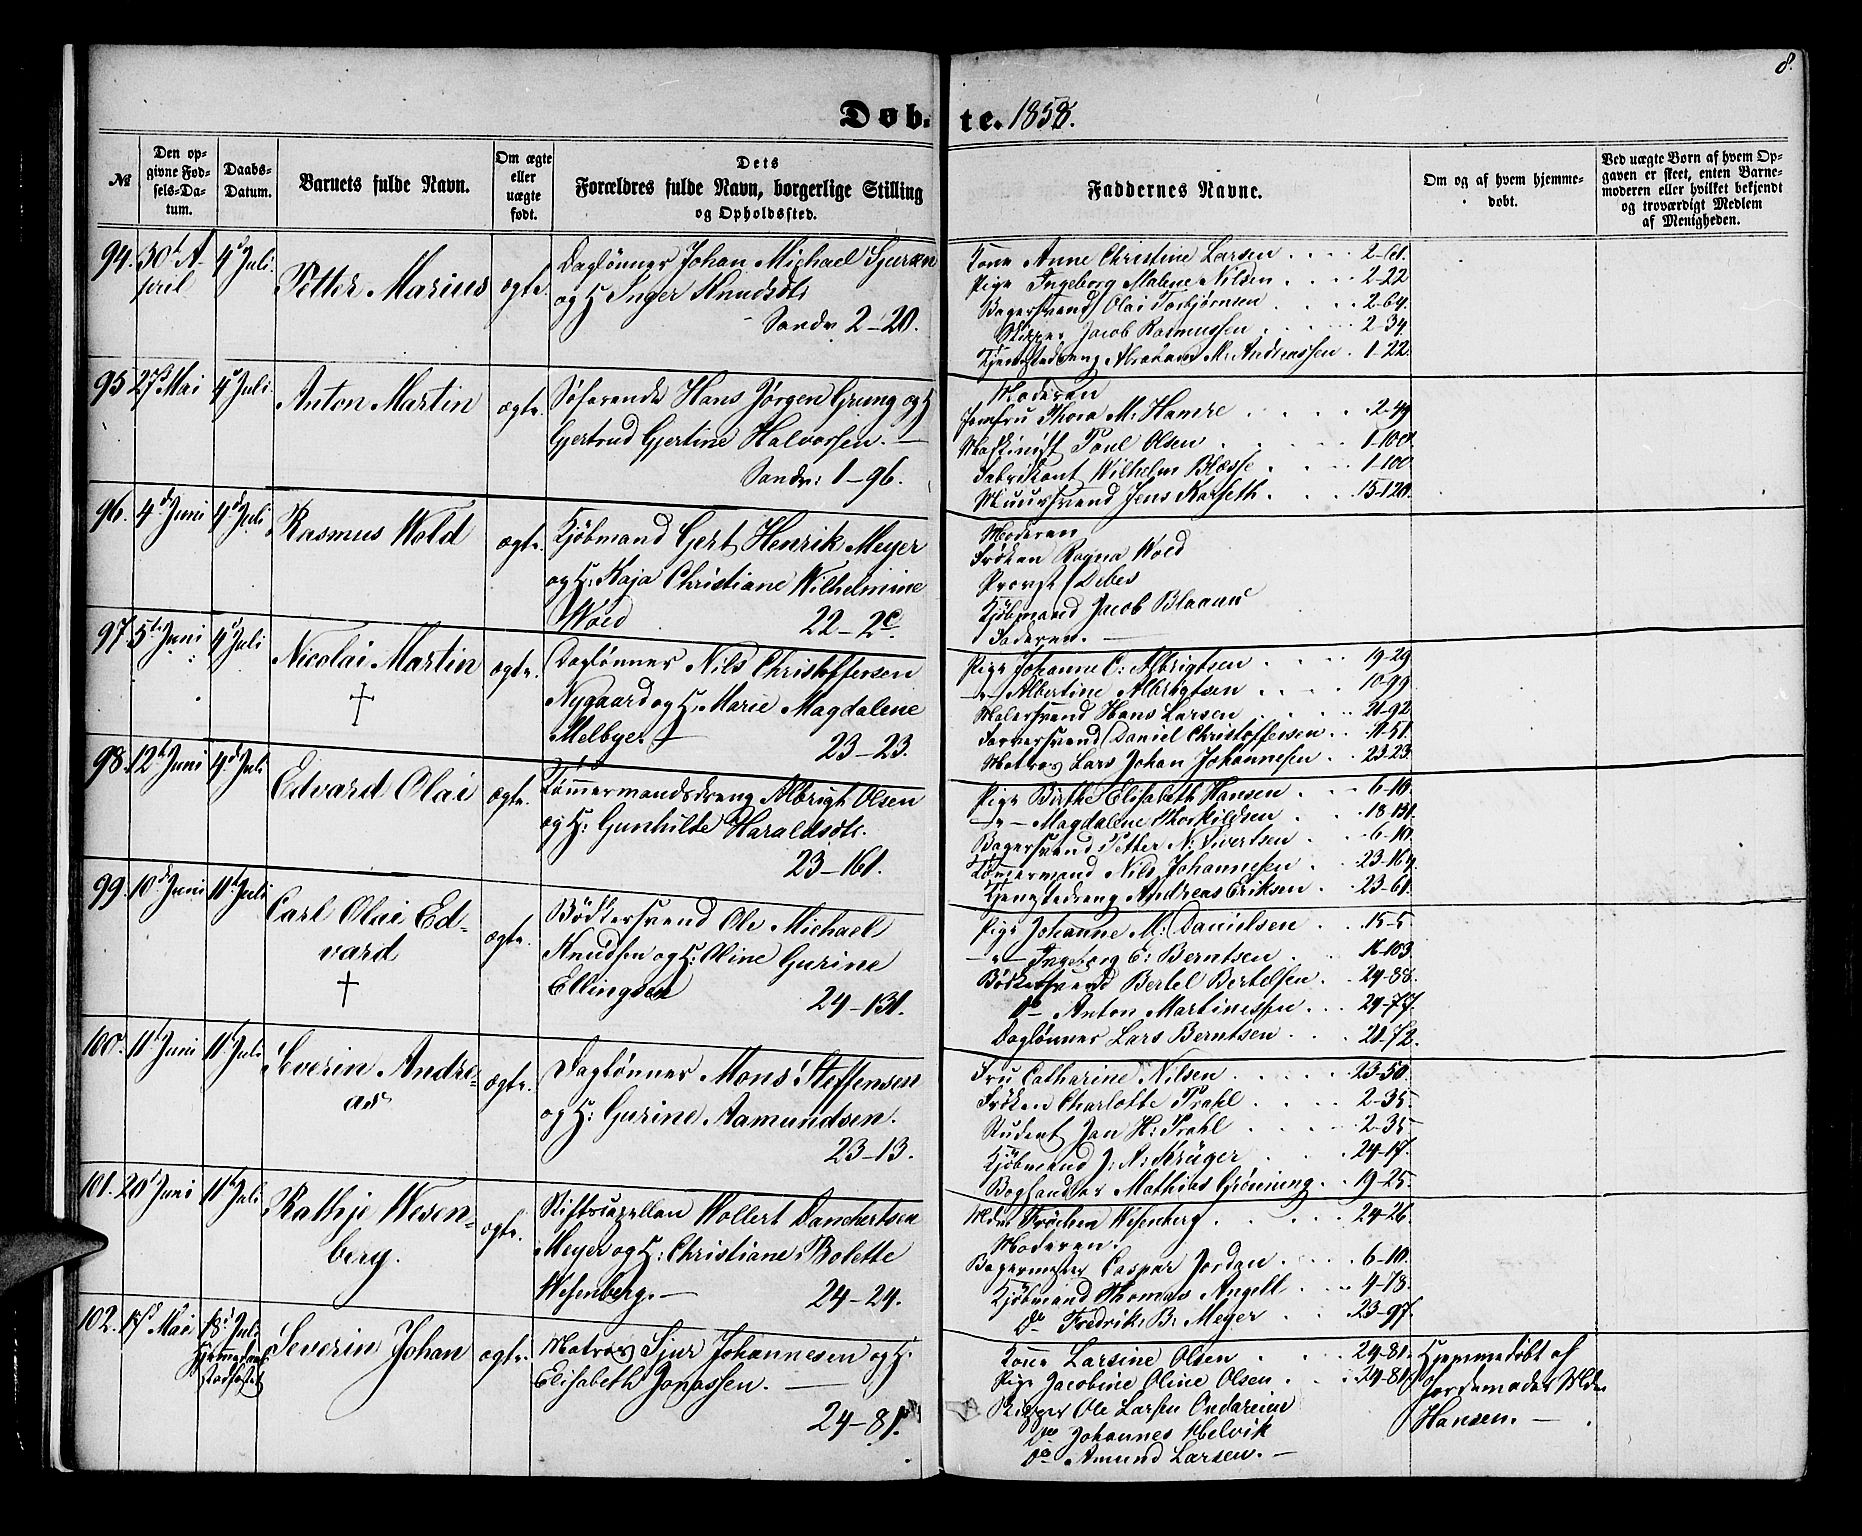 8.
Døbte. 1858.
№
Den opgivne Fødsels-Datum.
Daabs-Datum.
Barnets fulde Navn.
Om ægte eller uægte født.
Dets Forældres fulde Navn, borgerlige Stilling og Opholdssted.
Faddernes Navne.
Om og af hvem hjemmedøbt.
Ved uægte Børn af hvem Opgaven er skeet, enten Barnemoderen eller hvilket bekjendt og troværdigt Medlem af Menigheden.
94. 30t April 4d Juli Petter Marius ægte
Daglønner Johan Michael
og H. Inger Knudsdtr
Sandv. 2-20.
Kone Anne Christine Larsen 2-61.
Pige Ingeborg Malene Nilsen 2-22
Bagersvend Olai Torbjørnsen 2-64.
Skipper Jacob Rasmussen 2-34
Tjenestedreng Abraham M. Andreassen 1-22.
95 27d Mai 4d Juli Anton Martin ægte.
Søfarende Hans Jørgen Grung og H
Gertrud Gjertine Halvorsen. —
Sandv: 1-96.
Moderen
Jomfru Thora M. Hamre 2-49
Maskinist Poul Olsen 1-100.
Fabrikant Wilhelm Blæsse 1-100
Muursvend Jens Karseth 15-120.
96. 4d Juni 4d Juli Rasmus Wold ægte.
Kjøbmand Gert Henrik Meyer
og H: Kaja Christiane Wilhelmine
Wold 22-2c.
Moderen
Frøken Ragna Wold
Provst Debes
Kjøbmand Jacob Blaauw
Faderen. —
97. 5te Juni 4d Juli Nicolai Martin † ægte.
Daglønner Nils Christoffersen
Nygaard og H. Marie Magdalene
Melbye. — 23-23.
Pige Johanne C: Albrigtsen 19-29
-"- Albertine Albrigtsen 10-99
Malersvend Hans Larsen 21-92
Farversvend Daniel Christoffersen 11-51.
Matros Lars Johan Johannesen 23-23.
98. 12t Juni 4d Juli Edvard Olai ægte.
Tømmermandsdreng Albrigt Olsen
og H: Gunhilde Haraldsdtr.
23-161.
Pige Birthe Elisabeth Hansen 6-10.
-"- Magdalene Thorkildsen 18-131.
Bagersvend Petter N. Sivertsen 6-10
Tømmermand Nils Johannesen 23-164.
Tjenestedreng Andreas Eriksen 23-61.
99. 10d Juni 11t Juli Carl Olai Edvard † ægte.
Bødkersvend Ole Michael
Knudsen og H: Oline Gurine
Ellingsen 24-131.
Pige Johanne M: Danielsen 15-5
-"- Ingeborg E: Berntsen 16-103
Bødkersvend Bertel Bertelsen 24-88.
Do Anton Martinessen 24-77.
Daglønner Lars Berntsen 21-72.
100. 11t Juni 11t Juli Severin Andreas ægte.
Daglønner Mons Steffensen
og H: Gurine Aamundsen.
23-13.
Fru Catharine Nilsen 23-50.
Frøken Charlotte Prahl 2-35.
Student Jan H: Prahl 2-35
Kjøbmand J: A: Krüger 24-17.
Boghandler Mathias Grønning 19-25.
101. 20d Juni 11t Juli Kathje Wesenberg. ægte.
Stiftscapellan Wollert Danchertsen
Meyer og H: Christiane Bolette
Wesenberg. — 24-24.
Mdm Wesenberg 24-26.
Moderen.
Bagermester Caspar Jordan 6-10.
Kjøbmand Thomas Angell 4-78.
Do Fredrik B: Meyer 23-97.
102. 17d Mai 18d Juli Severin Johan ægte.
Matros Sjur Johannesen og H.
Elisabeth Jonassen. —
24-81.
Kone Larsine Olsen 24-81.
Pige Jacobine Oline Olsen 24-81
Skipper Ole Larsen
Do Johannes Helvik
Do Amund Larsen. —
Hjemmedøbt af
Jordemoder Mdm
Hansen. —